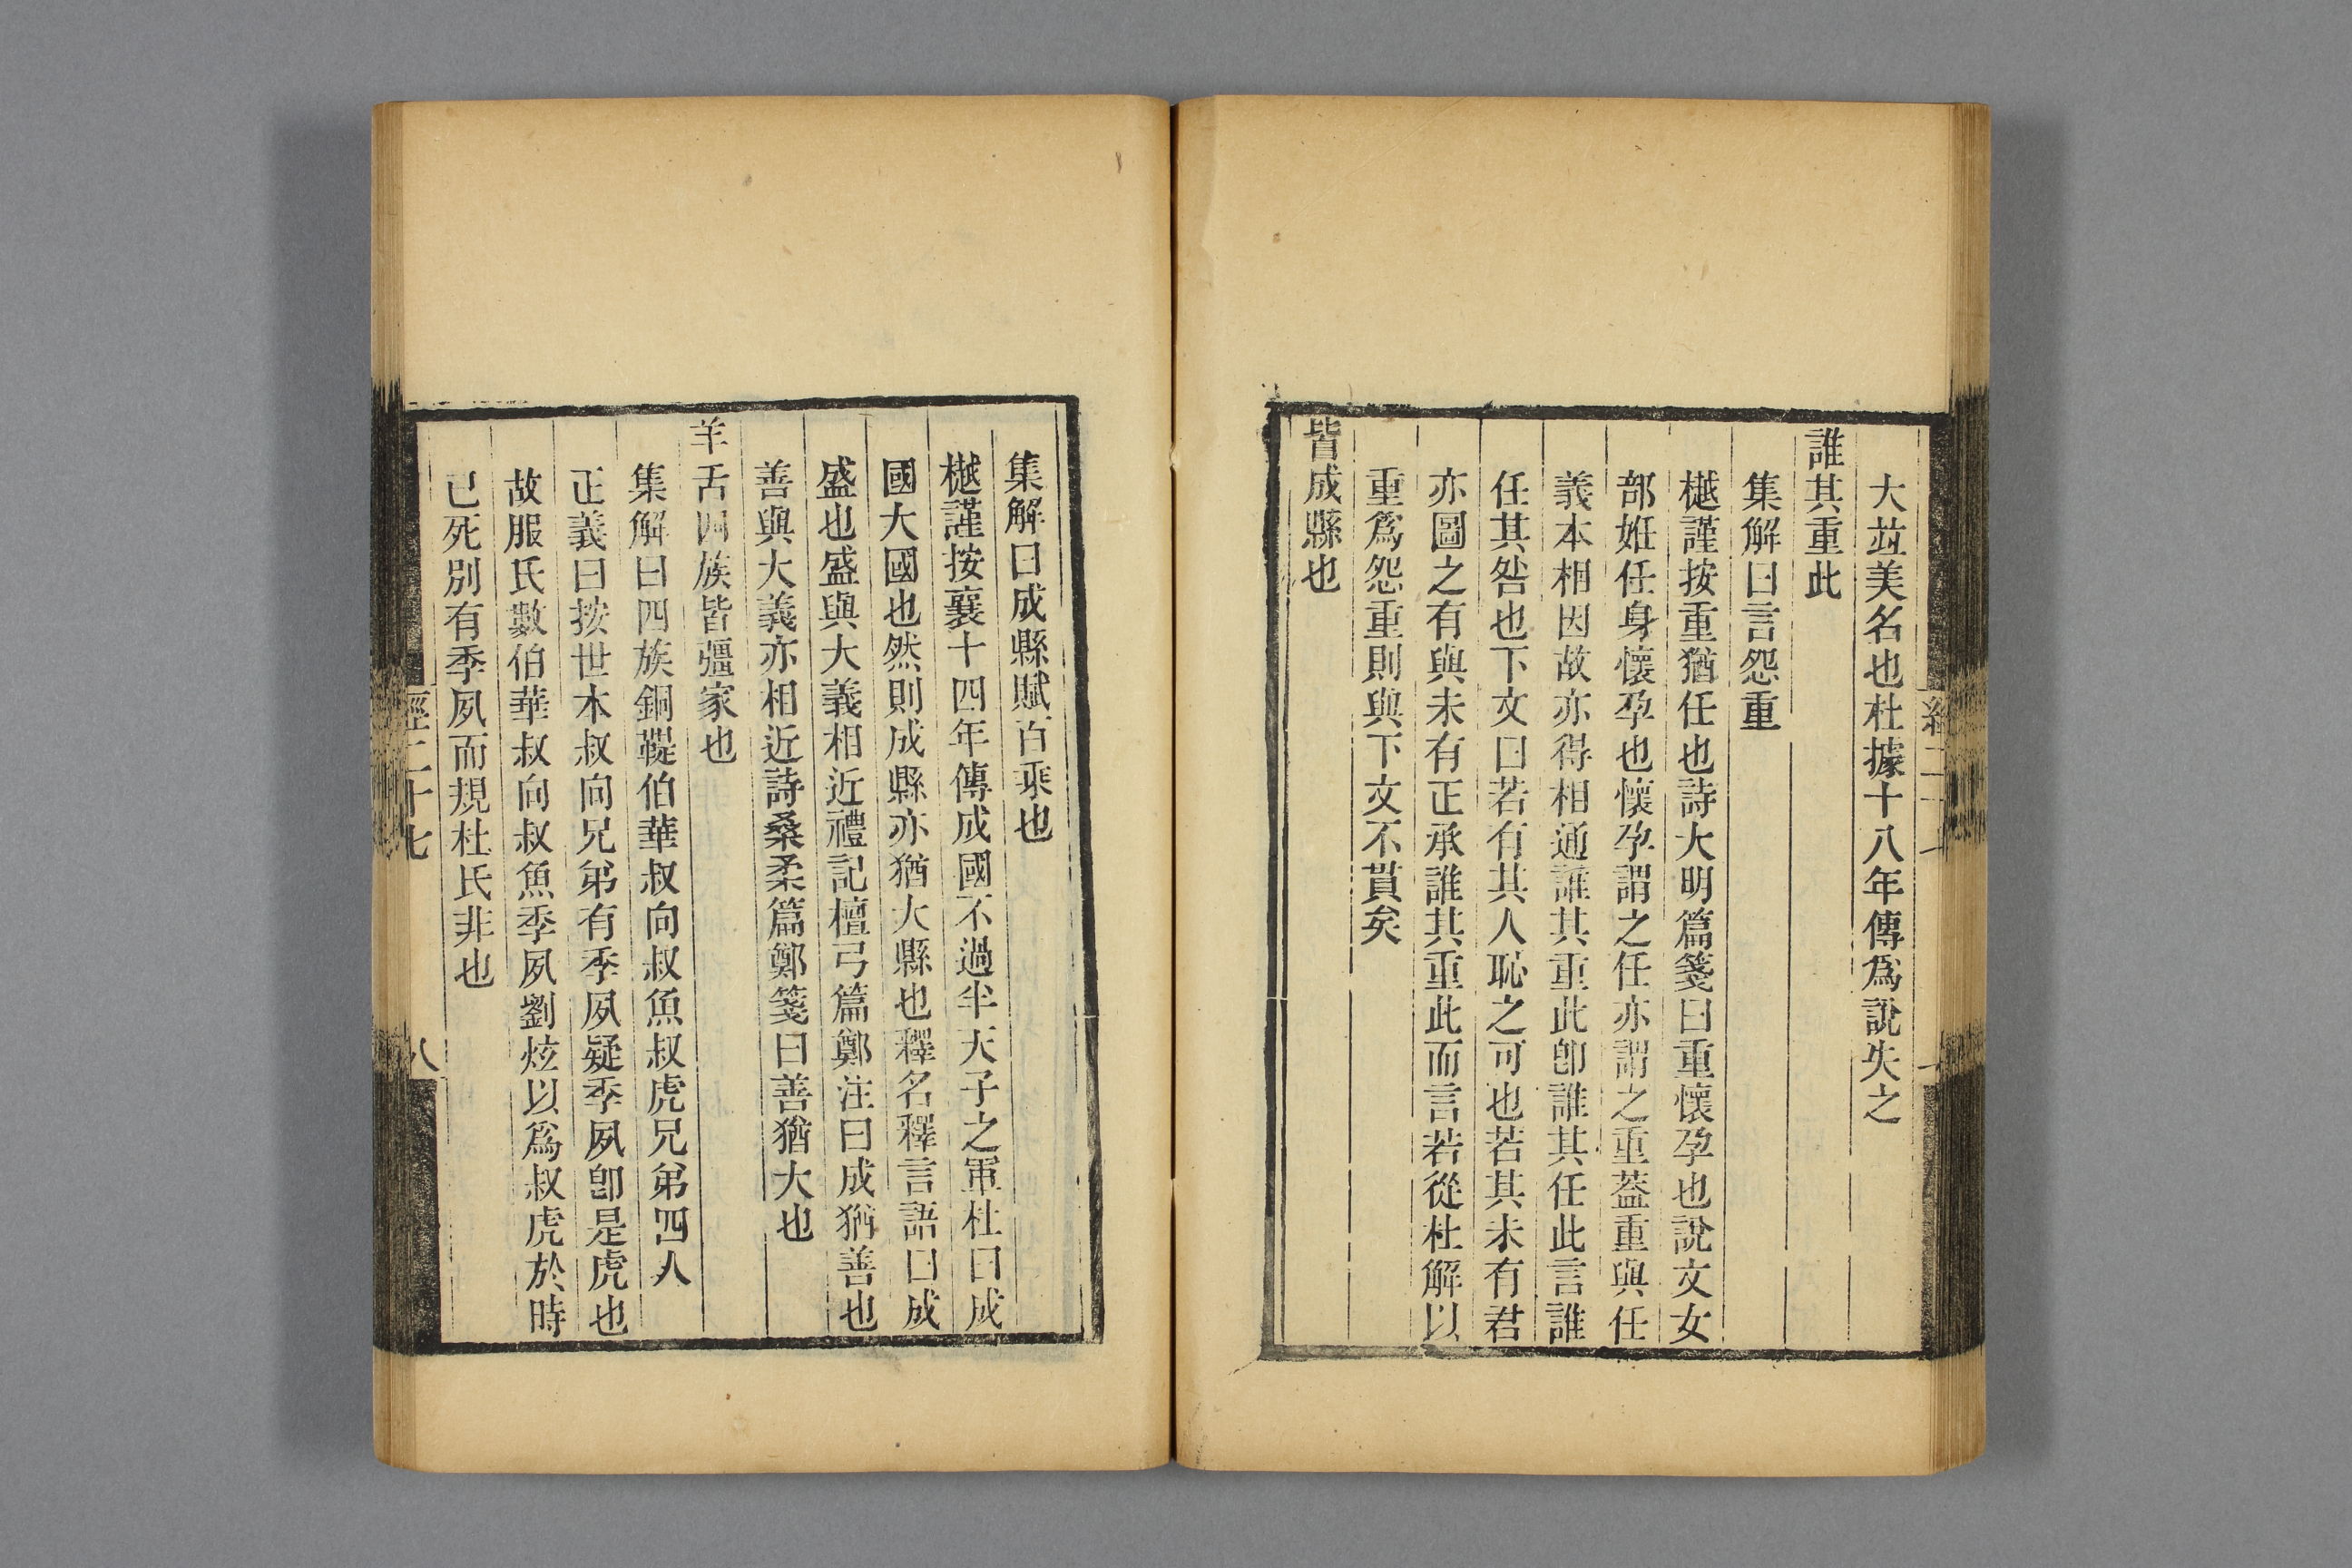 大竝美名也杜據十八年傳爲說失之
誰其重此
集解曰言怨重
樾謹按重猶任也詩大明篇箋曰重懷孕也說文女
部姙任身懷孕也懷孕謂之任亦謂之重蓋重與任
義本相因故亦得相通誰其重此卽誰其任此言誰
任其咎也下文曰若有其人恥之可也若其未有君
亦圖之有與未有正承誰其重此而言若從杜解以
重爲怨重則與下文不貫矣
皆成縣也
集解曰成縣賦百乘也
樾謹按襄十四年傳成國不過半天子之軍杜曰成
國大國也然則成縣亦猶大縣也釋名釋言語曰成
盛也盛與大義相近禮記檀弓篇鄭注曰成猶善也
善與大義亦相近詩桑柔篇鄭箋曰善猶大也
羊舌四族皆彊家也
集解曰四族銅鞮伯華叔向叔魚叔虎兄弟四人
正義曰按世本叔向兄弟有季夙疑季夙卽是虎也
故服氏數伯華叔向叔魚季夙劉炫以爲叔虎於時
已死別有季夙而規杜氏非也
經二十七
八